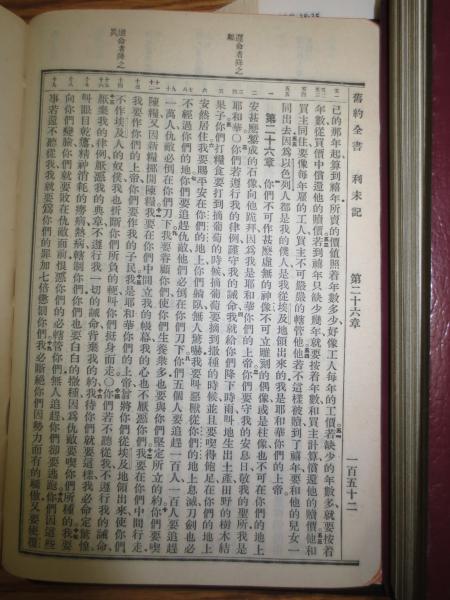 舊約全書　利未記　第二十六章　一百五十二
己的那年起算到禧年所賣的價值照着年數多少好像工人每年的工價若缺少的年數多就要按着
年數從買價中償還他的贖價若到禧年只缺少幾年就要按着年數和買主計算償還他的贖價他和
買主同住要像每年雇的工人買主不可嚴嚴的轄管他他若不這樣被贖到了禧年要和他的兒女一
同出去因爲以色列人都是我的僕人是我從埃及地領出來的我是耶和華你們的上帝
第二十六章　你們不可作甚麽虛無的神像不可立雕刻的偶像或是柱像也不可在你們的地上
安甚麽鏨成的石像向他跪拜因爲我是耶和華你們的上帝你們要守我的安息日敬我的聖所我是
耶和華〇你們若遵行我的律例謹守我的誡命我就給你們降下時雨叫地生出土產田野的樹木結
果子你們打糧食要打到摘葡萄的時候摘葡萄要摘到撒種的時候並且要喫得飽足在你們的地上
安然居住我要賜平安在你們的地上你們躺臥無人驚嚇我要叫惡獸從你們的地上息滅刀劍也必
不經過你們的地你們要追趕仇敵他們必倒在你們刀下你們五個人要追趕一百人一百人要追趕
一萬人仇敵必倒在你們刀下我要眷顧你們使你們生養衆多也要與你們堅定所立的約你們要喫
陳糧又因新糧挪開陳糧我要在你們中間立我的帳幕我的心也不厭惡你們我要在你們中間行走
我要作你們的上帝你們要作我的子民我是耶和華你們的上帝曾將你們從埃及地領出來使你們
不作埃及人的奴僕我也折斷你們所負的軛叫你們挺身而走〇你們若不聽從我不遵行我的誡命
厭棄我的律例厭惡我的典章不遵行我一切的誡命背棄我的約我待你們就要這樣我必命定驚惶
叫眼目乾癟精神消耗的癆病熱病轄制你們你們也要白白的撒種因爲仇敵要喫你們所種的我要
向你們變臉你們就要敗在仇敵面前恨惡你們的必轄管你們無人追趕你們卻要逃跑你們因這些
事若還不聽從我我就要爲你們的罪加七倍懲罰你們我必斷絕你們因勢力而有的驕傲又要使覆
遵命者降之
違命者降之